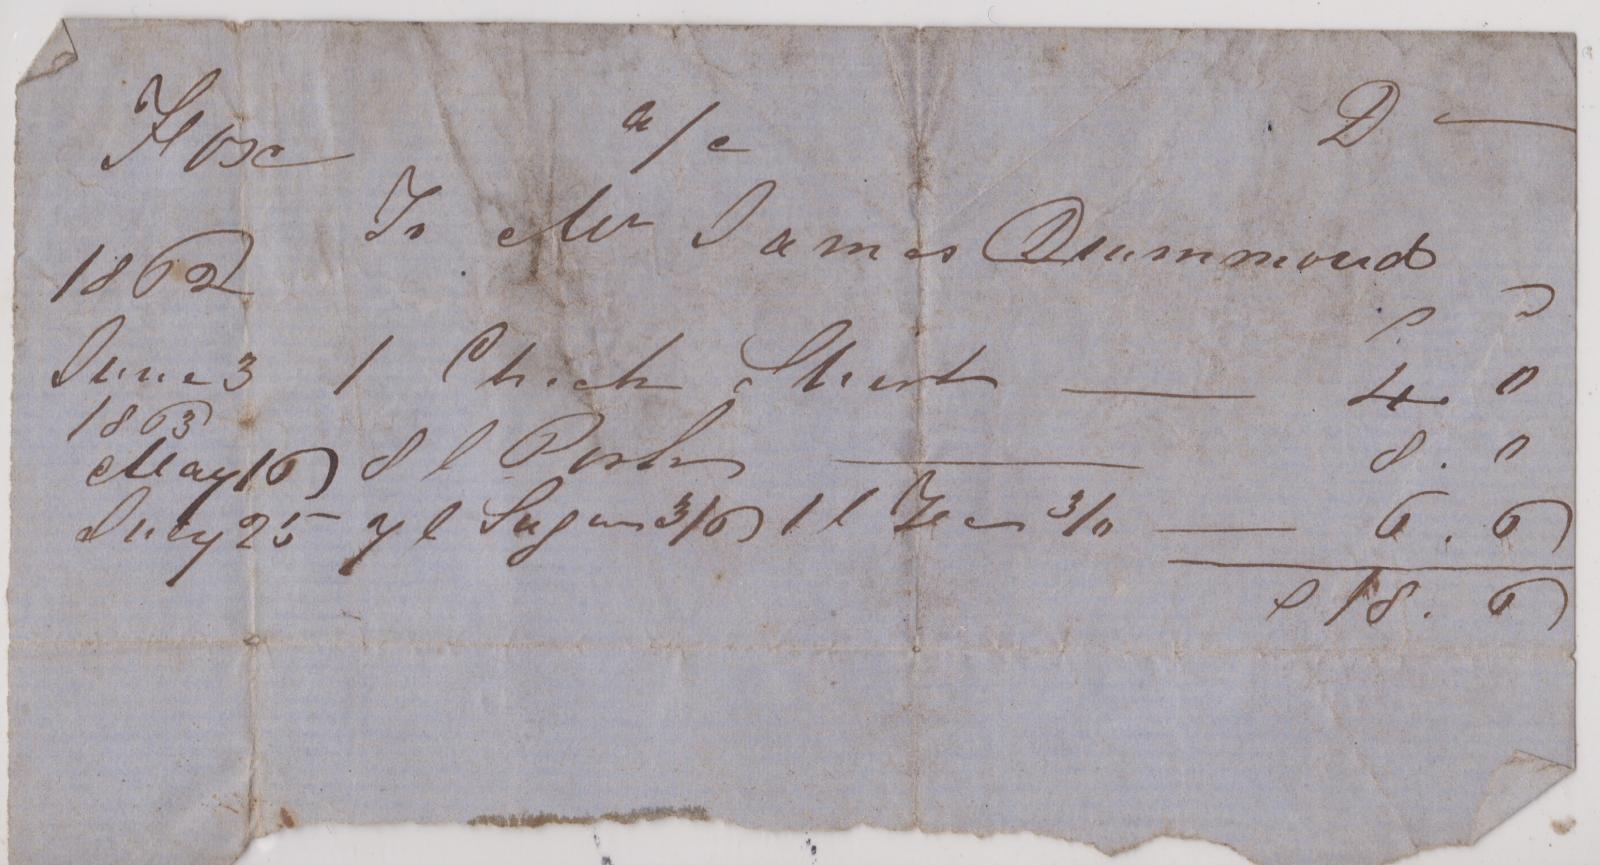 Fox a/c D
To Mr James Drummond
1862 s d
June 3 1 Check Shirt 4. 0
1863
May 16 8 l Pork 8. 0
July 25 7 l Sugar 3/6 1 l Tea 3/0 6. 6
18. 6